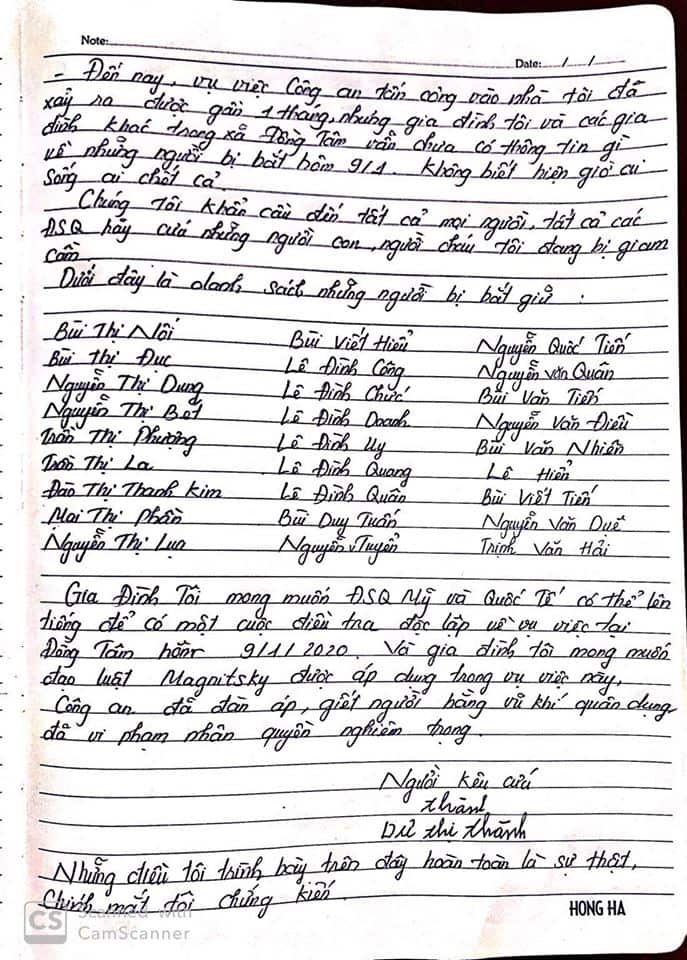 Note:
Date: / /
- Đến nay, vụ việc Công an tấn công vào nhà tôi đã
xảy ra được gần 1 tháng, nhưng gia đình tôi và các gia
đình khác trong xã Đồng Tâm vẫn chưa có thông tin gì
về những người bị bắt hôm 9/1. Không biết hiện giờ ai
sống ai chết cả.
Chúng tôi khẩn cầu đến tất cả mọi người, tất cả các
ĐSQ hãy cứu những người con, người cháu tôi đang bị giam
cầm
Dưới đây là danh sách những người bị bắt giữ.
Bùi Thị Nối Bùi Viết Hiểu Nguyễn Quốc Tiến
Bùi Thị Đục Lê Đình Công Nguyễn Văn Quân
Nguyễn Thị Dung Lê Đình Chức Bùi Văn Tiến
Nguyễn Thị Bét Lê Đình Doanh Nguyễn Văn Điều
Trần Thị Phượng Lê Đình Uy Bùi Văn Nhiên
Trần Thị La Lê Đình Quang Lê Hiển
Đào Thị Thanh Kim Lê Đình Quân Bùi Viết Tiến
Mai Thị Phần Bùi Duy Tuấn Nguyễn Văn Duế
Nguyễn Thị Lụa Nguyễn V Tuyển Trịnh Văn Hải
Gia Đình Tôi mong muốn ĐSQ Mỹ và Quốc Tế có thể lên
tiếng để có một cuộc điều tra độc lập về vụ việc tại
Đồng Tâm hôm 9/1/2020. Và gia đình tôi mong muốn
đạo luật Magnitsky được áp dụng trong vụ việc này,
Công an đã đàn áp, giết người bằng vũ khí quân dụng
đã vi phạm nhân quyền nghiêm trọng.
Người kêu cứu
Thành
Dư Thị Thành
Những điều tôi trình bày trên đây hoàn toàn là sự thật,
Chính mắt tôi chứng kiến.
HONG HA
CS Scanned with
CamScanner